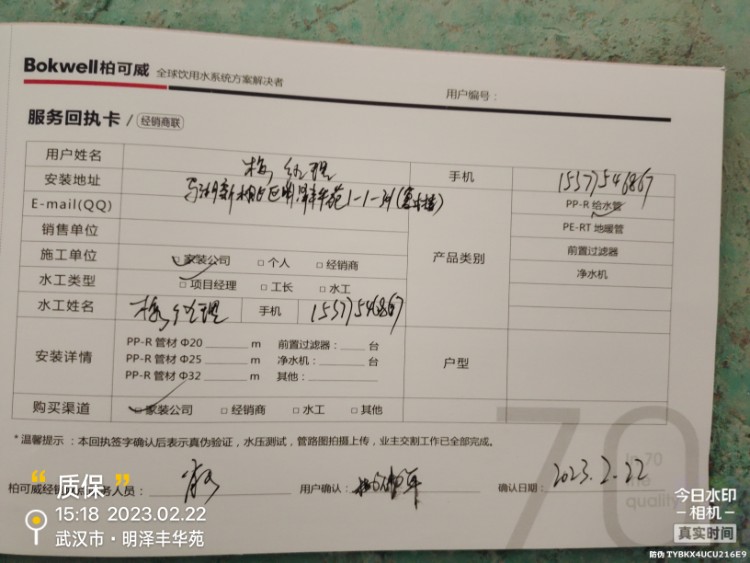 Bokwell柏可威 全球饮用水系统方案解决者
用户编号：
服务回执卡 / 经销商联
用户姓名 梅经理 手机 15377546867
安装地址 1-1-31
E-mail(QQ) 产品类别 PP-R 给水管
销售单位 PE-RT 地暖管
施工单位 家装公司 □ 个人 □ 经销商 前置过滤器
水工类型 □ 项目经理 □ 工长 □ 水工 净水机
水工姓名 梅经理 手机 15377546867
安装详情 户型
PP-R 管材 Φ20 ____ m 前置过滤器：____ 台
PP-R 管材 Φ25 ____ m 净水机：____ 台
PP-R 管材 Φ32 ____ m 其他：____
购买渠道 □ 家装公司 □ 经销商 □ 水工 □ 其他
*温馨提示：本回执签字确认后表示真伪验证，水压测试，管路图拍摄上传，业主交割工作已全部完成。
70
柏可威经销 务人员：
用户确认：
确认日期：2023.2.22
in 70
quality
质保
15:18 2023.02.22
武汉市·明泽丰华苑
今日水印
-相机-
真实时间
防伪 TYBKX4UCU216E9